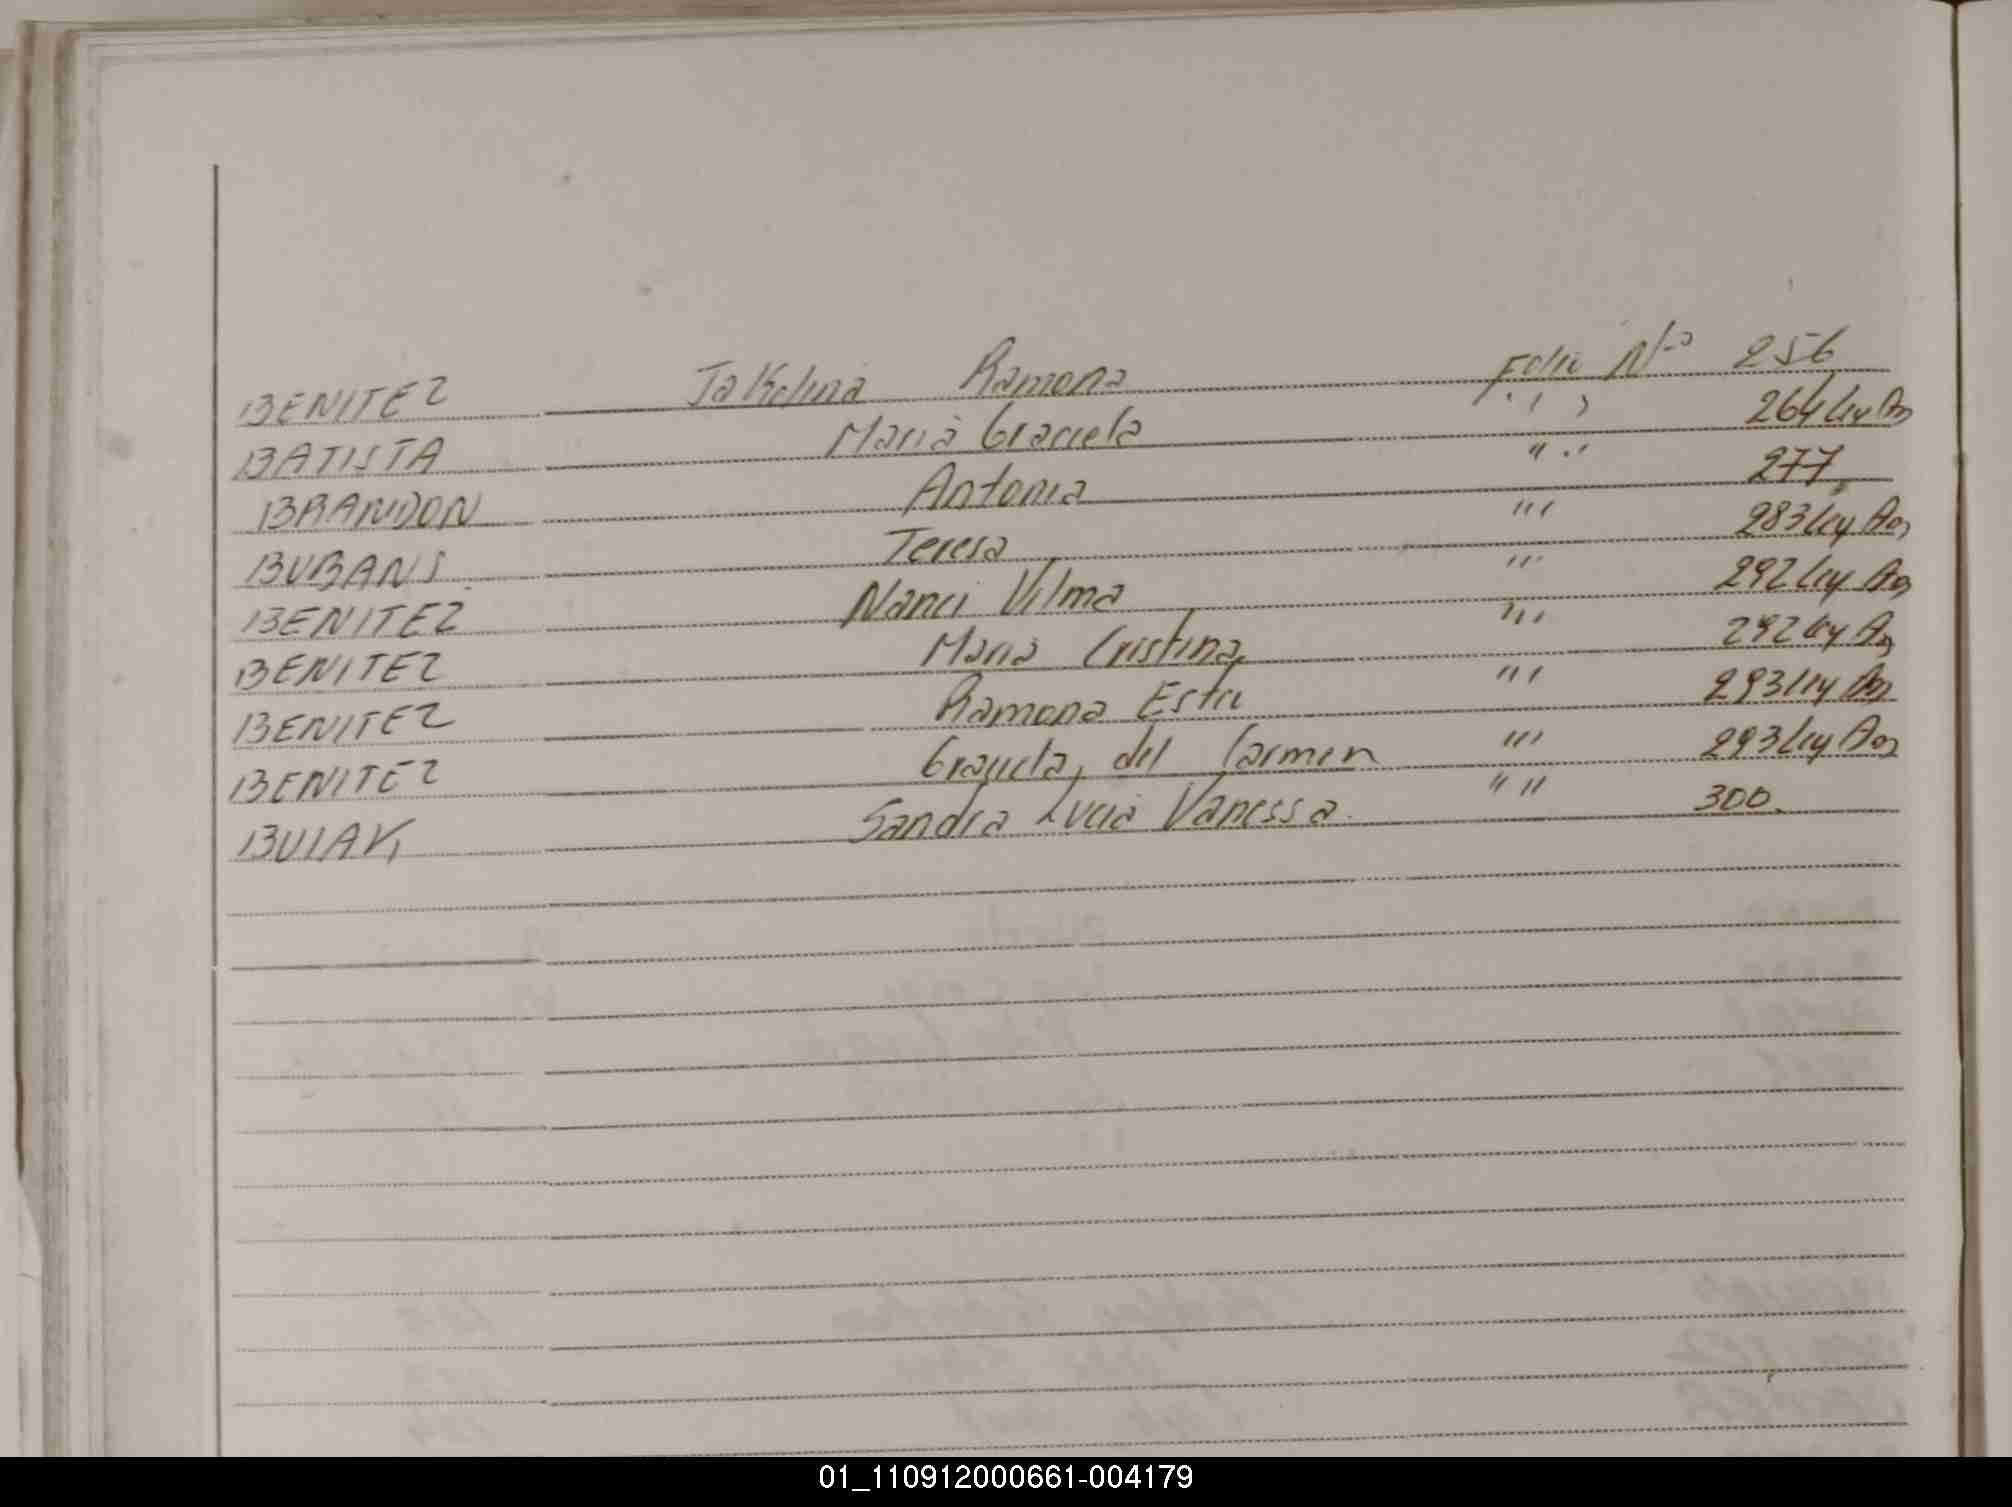 BENITEZ Jakelina Ramona Folio Nº 256
BATISTA Maria Graciela " " 264 Ley An
BRANDON Antonia " " 277
BUBANS Teresa " " 283 Ley An
BENITEZ Nanci Vilma " " 292 Ley An
BENITEZ Maria Cristina " " 292 Ley An
BENITEZ Ramona Ester " " 293 Ley An
BENITEZ Graciela del Carmen " " 293 Ley An
Sandra Lucia Vanessa " " 300
01_110912000661-004179